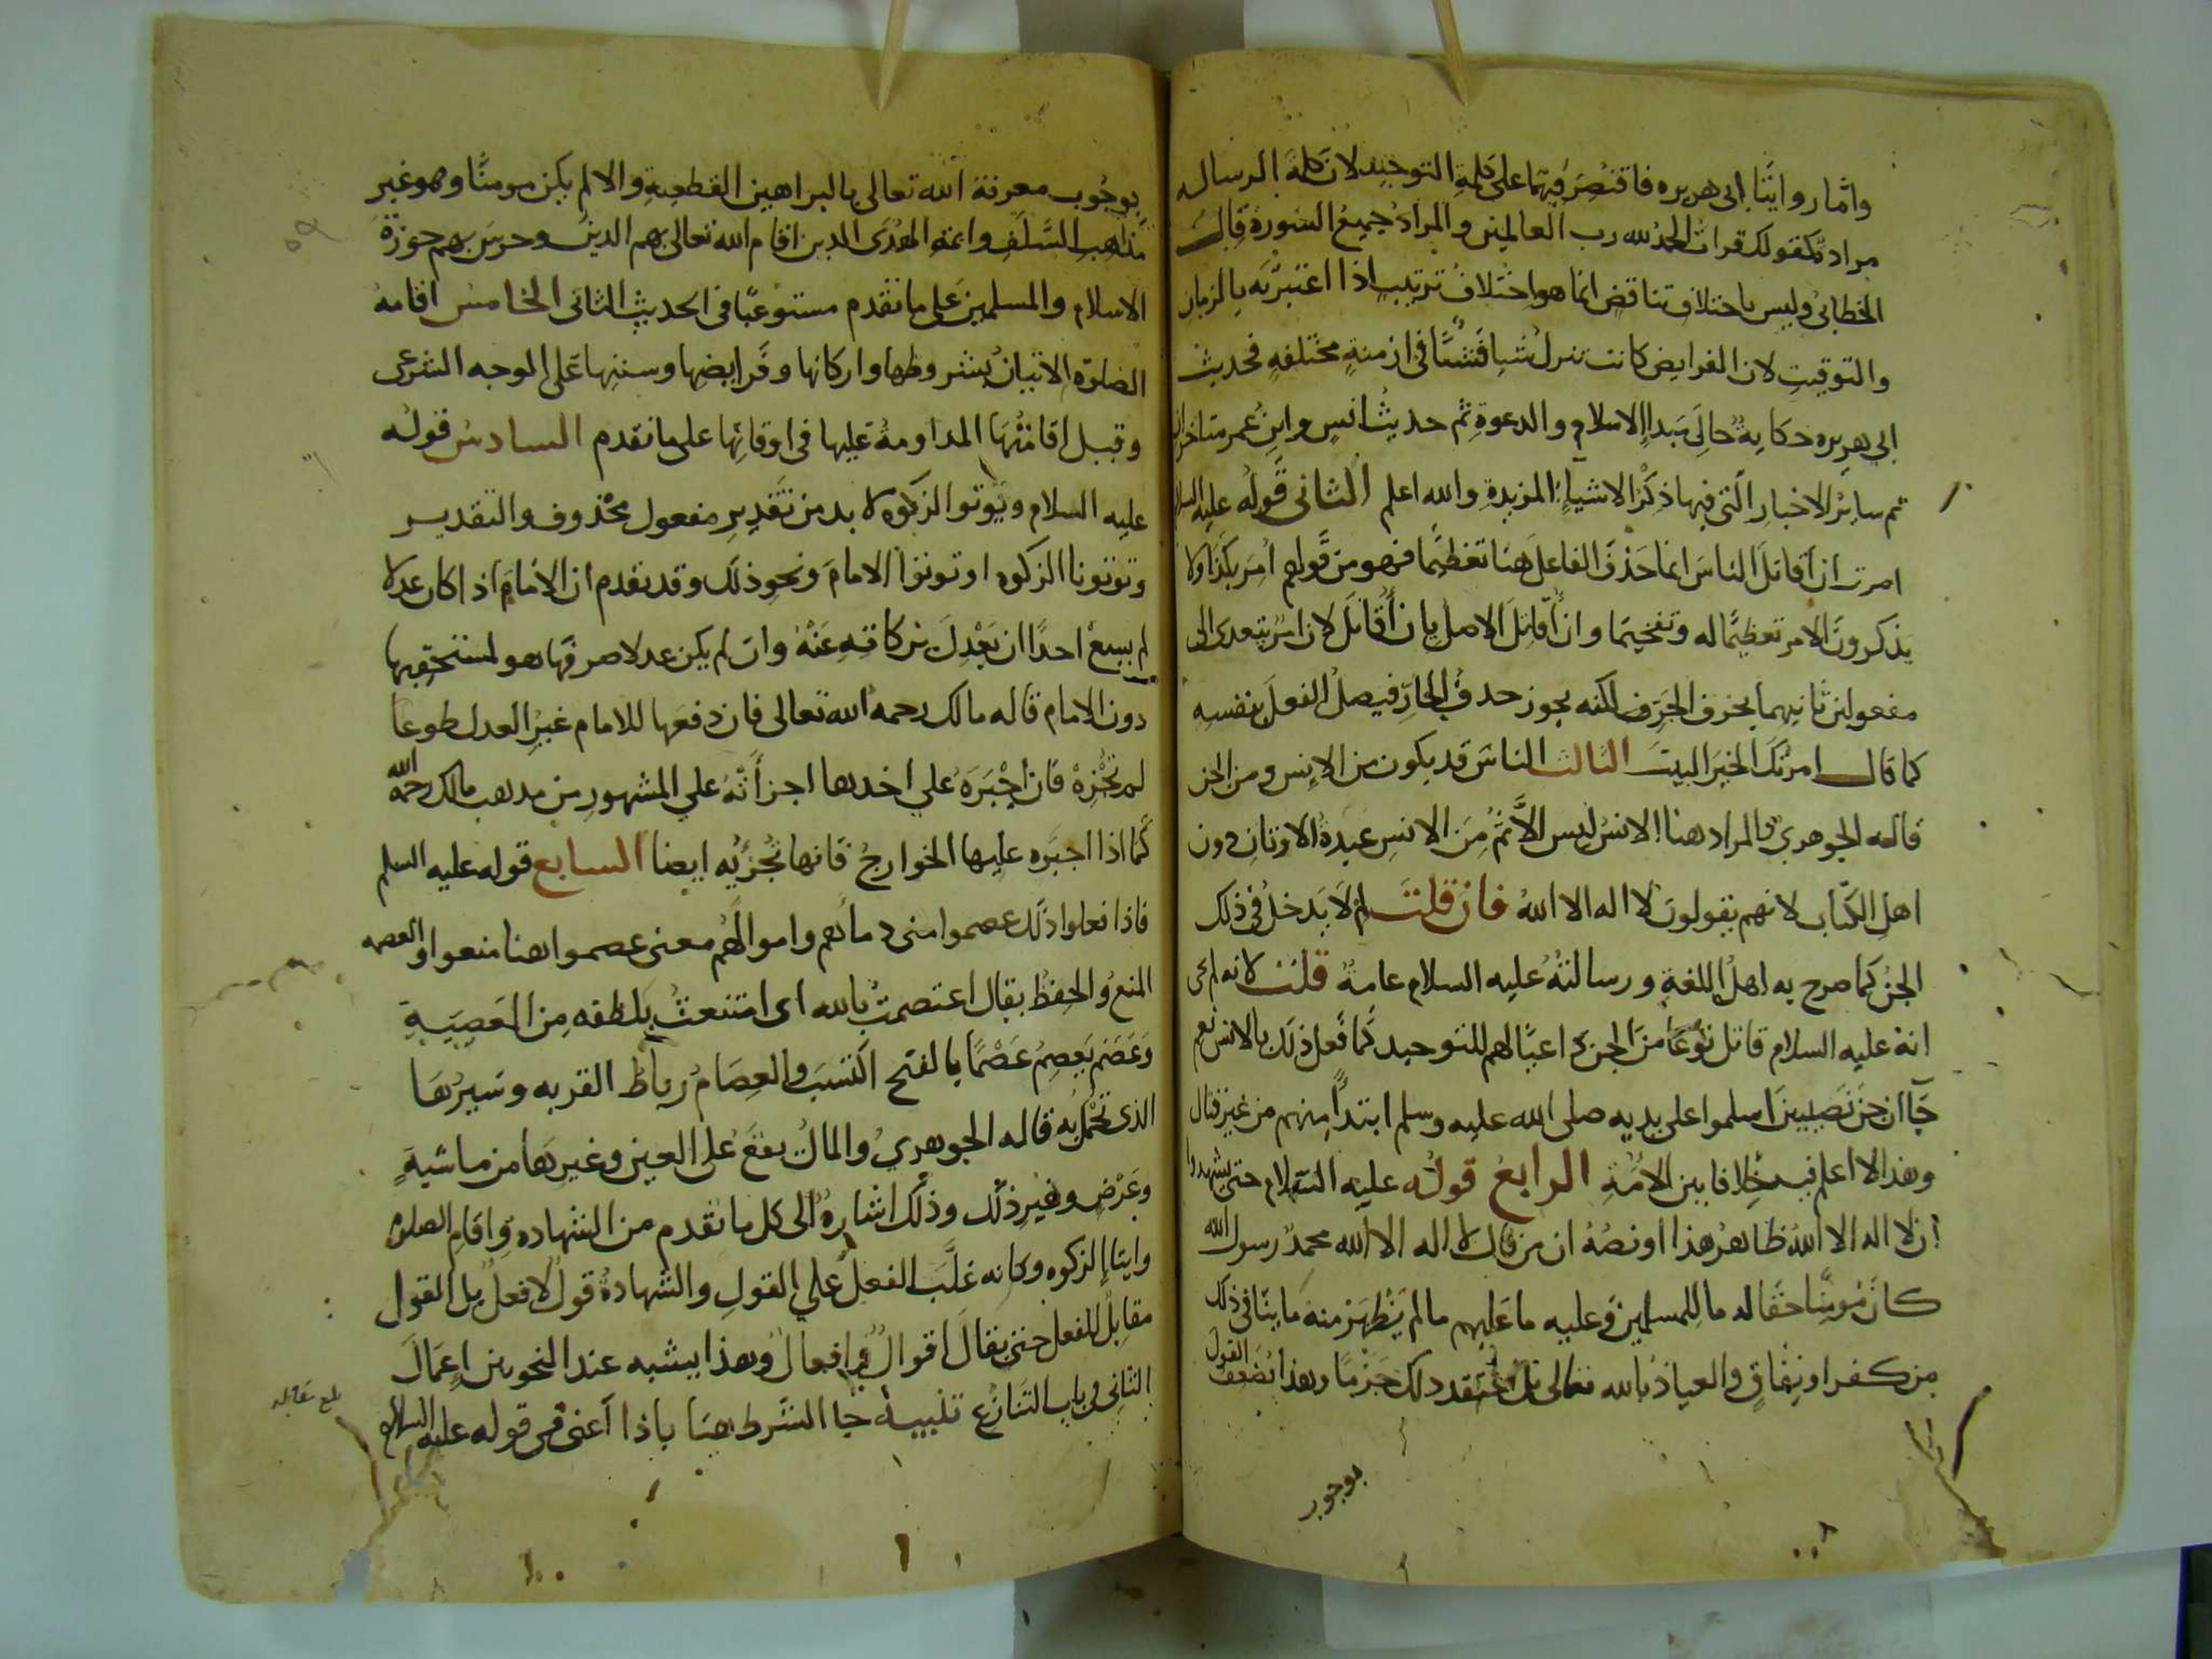 واما روايتا ابي هريره فاقتصر فيهما على كلمة التوحيد لان كلمة الرساله
مراد كقولك قرات الحمد لله رب العالمين والمراد جميع السورة قال
الخطابي وليس باختلاف تناقض انما هو اختلاف ترتيب اذا اعتبرته بالزمان
والتوقيت لان الفرايض كانت تنزل شيا فشيا في ازمنة مختلفه فحديث
ابي هريره حكاية حال مبدا الاسلام والدعوة ثم حديث انس وابن عمر متاخران
ثم ساير الاخبار التي فيها ذكر الاشياء المزيدة والله اعلم الثاني قوله عليه السلام
امرت ان اقاتل الناس انما حذف الفاعل هنا تعظيما فهو من قولهم امر بكذا ولا
يذكرون الامر تعظيما له وتفخيما وان اقاتل الاصل بان اقاتل لان امر يتعدى الى
مفعولين ثانيهما بحرف الجر لكنه يجوز حذف الجار فيصل الفعل بنفسه
كما قال امرتك الخير البيت الثالث الناس قد يكون من الانس ومن الجن
قاله الجوهري والمراد هنا الانس ليس الا ثم من الانس عبدة الاوثان دون
اهل الكتاب لانهم يقولون لا اله الا الله فان قلت لم لا يدخل في ذلك
الجن كما صرح به اهل اللغة ورسالته عليه السلام عامة قلت لانه لم يجي
انه عليه السلام قاتل نوعا من الجن داعيا لهم للتوحيد كما فعل ذلك بالانس نعم
جا ان جن نصيبين اسلموا على يديه صلى الله عليه وسلم ابتدا منهم من غير قتال
وهذا لا اعلم فيه خلافا بين الامة الرابع قوله عليه السلام حتى يشهدوا
ان لا اله الا الله ظاهر هذا او نصه ان من قال لا اله الا الله محمد رسول الله
كان مومنا حقا له ما للمسلمين وعليه ما عليهم ما لم يظهر منه ما ينافي ذلك
من كفر او نفاق والعياذ بالله تعالى بل اعتقد ذلك جزما وهذا يضعف القول
بوجوب
بوجوب معرفة الله تعالى بالبراهين القطعية والا لم يكن مومنا وهو غير
مذاهب السلف وايمة الهدى الدين اقام الله تعالى بهم الدين وحرس بهم حوزة
الاسلام والمسلمين على ما تقدم مستوعبا في الحديث الثاني الخامس اقامة
الصلاة الاتيان بشروطها واركانها وفرايضها وسننها على الوجه الشرعي
وقيل اقامتها المداومة عليها في اوقاتها على ما تقدم السادس قوله
عليه السلام ويوتوا الزكوه لا بد من تقدير مفعول محذوف والتقدير
وتوتونا الزكوه او توتوا الامام ونحو ذلك وقد تقدم ان الامام اذا كان عدلا
لم يسع احدا ان يعدل بزكاته عنه وان لم يكن عدلا صرفها هو لمستحقيها
دون الامام قاله مالك رحمه الله تعالى فان دفعها للامام غير العدل طوعا
لم تجزه فان اجبره على اخذها اجزاته على المشهور من مذهب مالك رحمه الله
كما اذا اجبره عليها الخوارج فانها تجزيه ايضا السابع قوله عليه السلم
فاذا فعلوا ذلك عصموا مني دماهم واموالهم معنى عصموا هنا منعوا والعصمه
المنع والحفظ يقال اعتصمت بالله اي امتنعت بلطفه من المعصية
وعصم يعصم عصما بالفتح اكتسب والعصام رباط القربه وسيرها
الذي تحمل به قاله الجوهري والمال يقع على العين وغيرها من ماشية
وعرض وغير ذلك وذلك اشارة الى كل ما تقدم من الشهادة واقام الصلوه
وايتا الزكوه وكانه غلب الفعل على القول والشهادة قول لا فعل بل القول
مقابل للفعل حتى يقال اقوال وافعال وهذا يشبه عند النحويين اعمال
الثاني في باب التنازع تنبيه جا الشرط هنا باذا اعني في قوله عليه السلام
بلغ مقابله